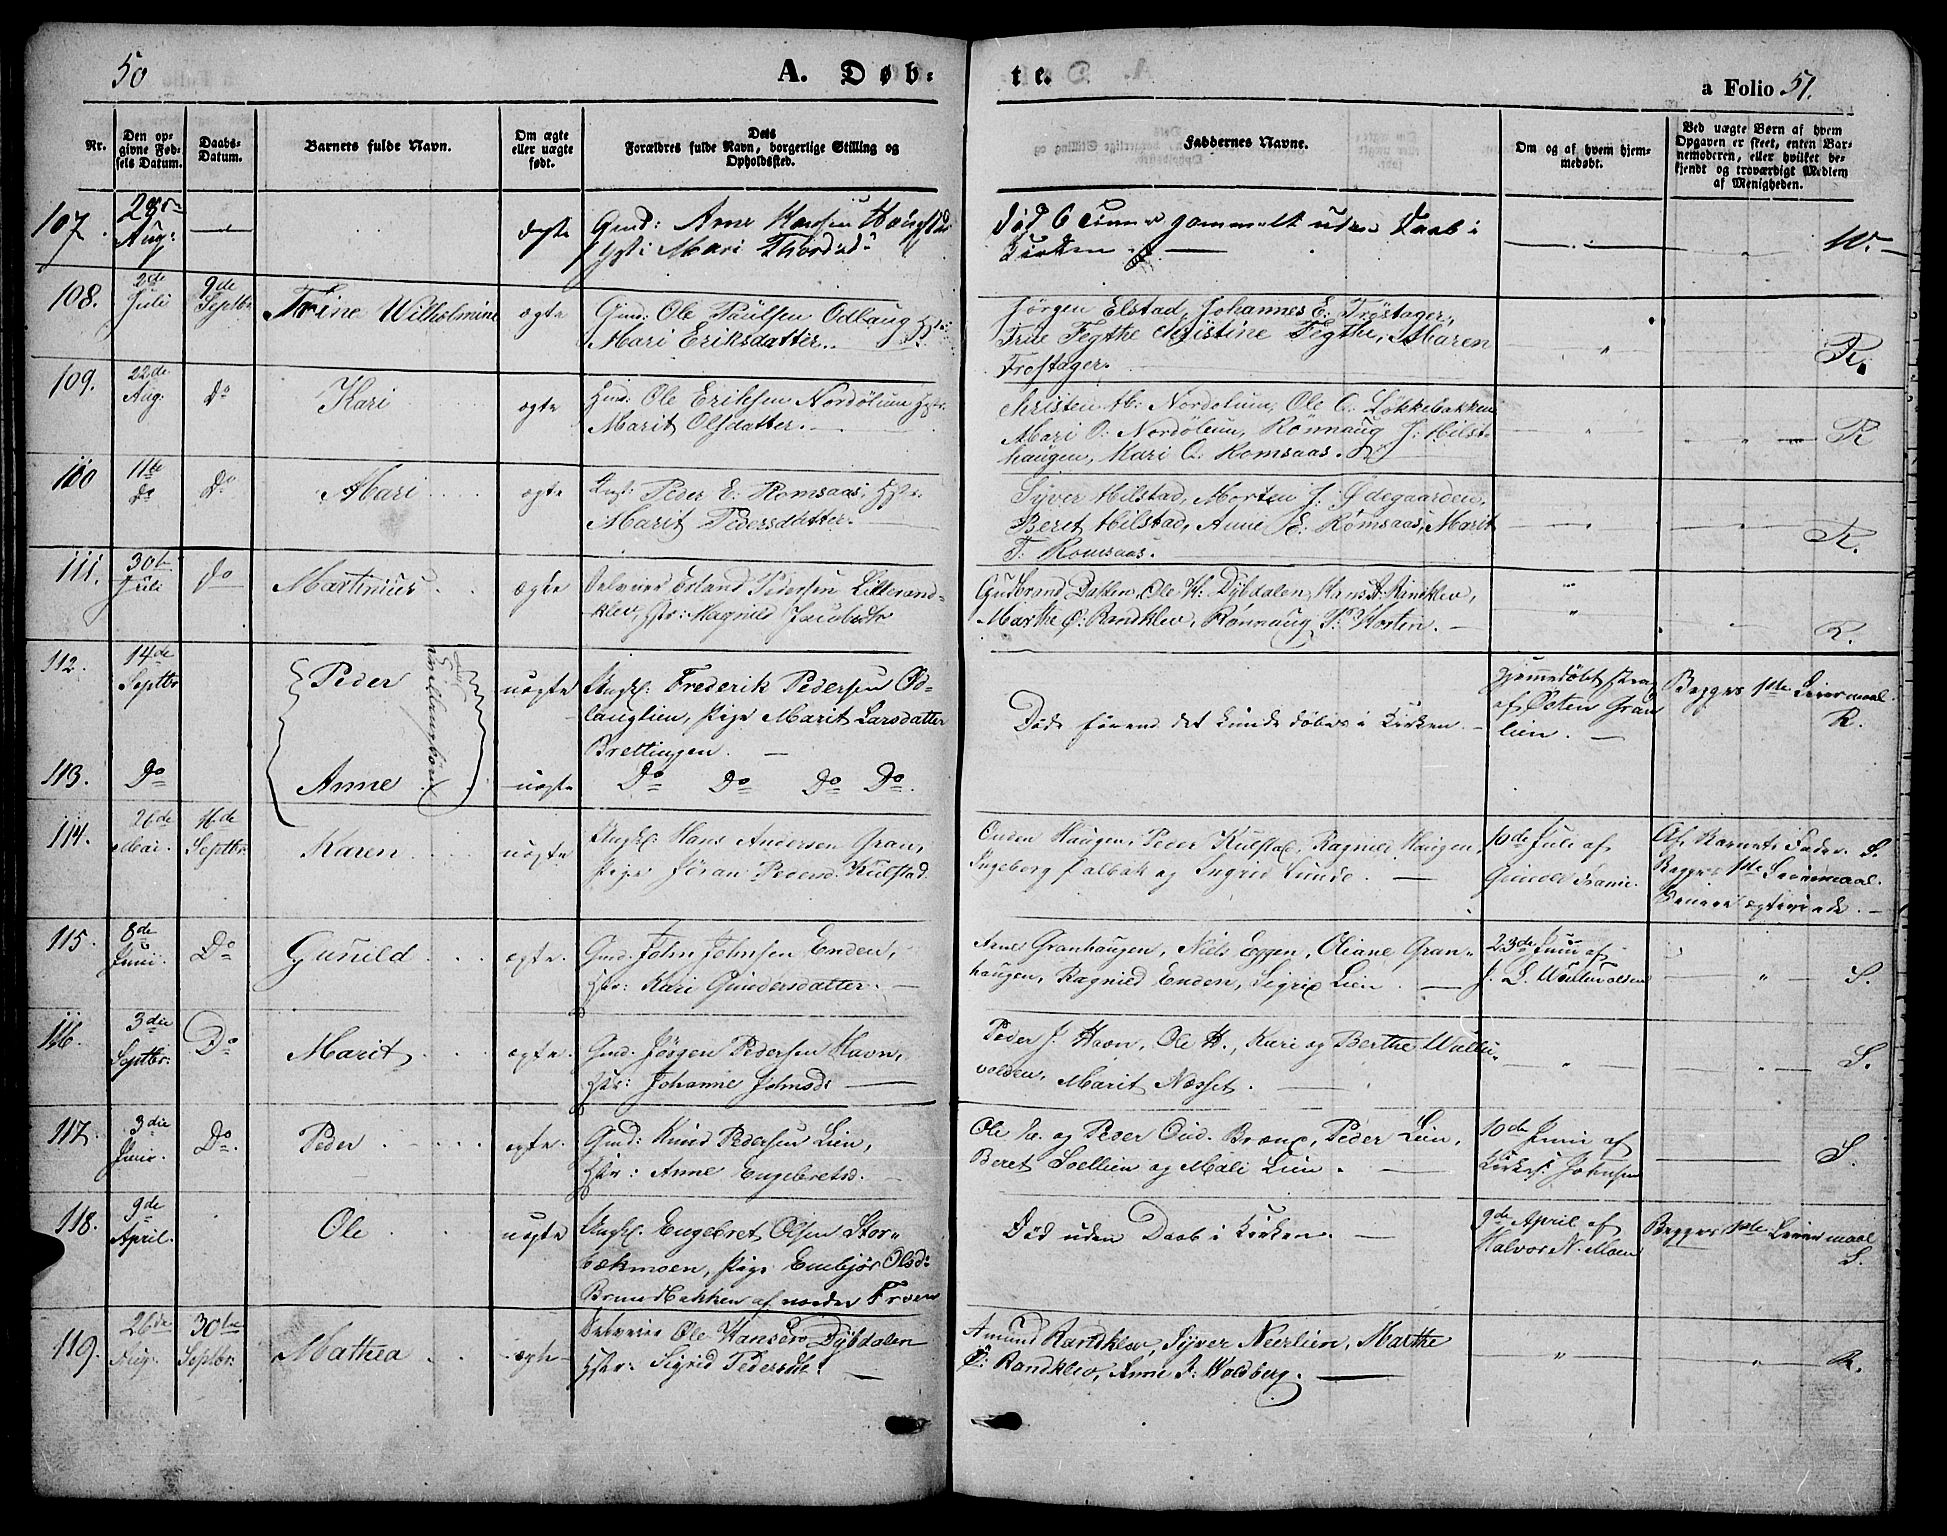 50
A. Døb-
te.
a Folio 51.
Nr.
Den opgivne Fødsels Datum.
Daabs-Datum.
Barnets fulde Navn.
Om ægte eller uægte født.
Dets Forældres fulde Navn, borgerlige Stilling og Opholdssted.
Faddernes Navne.
Om og af hvem hjemmedøbt.
Ved uægte Børn af hvem Opgaven er skeet, enten Barnemoderen, eller hvilket bekjendt og troværdigt Medlem af Menigheden.
107.
Aug:
ægte
Gmd: Arne Hansen
Hst: Mari Thordsd:
Død 6 gammelt uden Daab i
Kirken
W.
108.
2de Juli
9de Septbr
Trine Wilhelmine
ægte
Gmd: Ole Paulsen Odlaug Hst:
Mari Eriksdatter.
Jørgen Elstad, Johannes E. Frøstager,
Frue Fegthe Christine Fegthe, Maren
Frøstager.
R.
109.
22de Aug:
Do
Kari
ægte
Ole Eriksen Nordølum Hst:
Marit Olsdatter.
Christen Nordølum, Ole O: Løkkebakken
Mari O: Nordølum, Rønnaug J: Hilst-
haugen, Kari O. Romsaas.
R
110
11te Do
Do
Mari
ægte
Peder E: Romsaas, Hst:
Marit Pedersdatter.
Syver Hilstad, Morten J: Ødegaarden,
Beret Hilstad, Anne E: Romsaas, Marit
Romsaas.
R.
111.
30te Juli
Do
Martinius
ægte
Selveier Erland Pedersen Lillerand-
klev, Hst: Magnild Jacobsdtr
Gudbrand Dahlen, Ole H: Dybdalen, Hans A: Randklev,
Marthe Ø: Randklev, Rønnaug P: Horten.
R.
112.
14de Septbr
Peder
Tvillingbørn
uægte
Ungk: Frederik Pedersen Od-
lauglien, Pige Marit Larsdatter
Brettingen.
Døde førend det kunde døbes i Kirken.
Hjemmedøbt
af Østen Gran
lien.
Begges 1ste Leiermaal
R.
113.
Do
Anne
uægte
Do Do Do Do.
114.
26de Mai.
16de Septbr:
Karen
uægte
Ungk: Hans Andersen Gran,
Pige Jøran Pedersd. Kulstad.
Haugen, Peder Kulstad, Ragnild Haugen,
Ingeborg Falbak og Ingrid Lunde.
10de Juli af
Af Barnets Fader. S.
Begges 1ste Leiermaal.
115.
8de Juni.
Do
Gunild
ægte.
Gmd. John Johnsen Enden,
Hst: Kari Gundersdatter.
Arne Granhaugen, Niels Eggen, Oliane Gran-
haugen, Ragnild Enden, Sigrid Lien.
23de Juni af
J. L. Wulluvolden
S.
116.
3die Septbr:
Do
Marit
ægte.
Gmd. Jørgen Pedersen Havn,
Hst: Johanne Johnsd:
Peder J. Havn, Ole H., Kari og Berthe Wullu-
volden, Marit Næsset.
S.
117.
3die Juni.
Do.
Peder
ægte.
Gmd: Knud Pedersen Lien,
Hst: Anne Engebretsd.
Ole og Peder Brænd, Peder Lien,
Beret Soellien og Mali Lien.
10de Juni af
Kirkes. Johnsen
S.
118.
9de April.
Ole
uægte
Ungk. Engebret Olsen Stor-
bækmoen, Pige Embjør Olsd:
Brunsbakken af nordre Froen
Død uden Daab i Kirken.
9de April af
Halvor N. Moen
Begges 1ste Leiermaal
S.
119.
26de Aug:
30te Septbr:
Mathea
ægte
Selveier Ole Hansen Dybdalen
Hst: Sigrid Pedersdt:
Amund Randklev, Syver Neerlien, Marthe
Ø: Randklev, Anne J: Woldberg.
R.